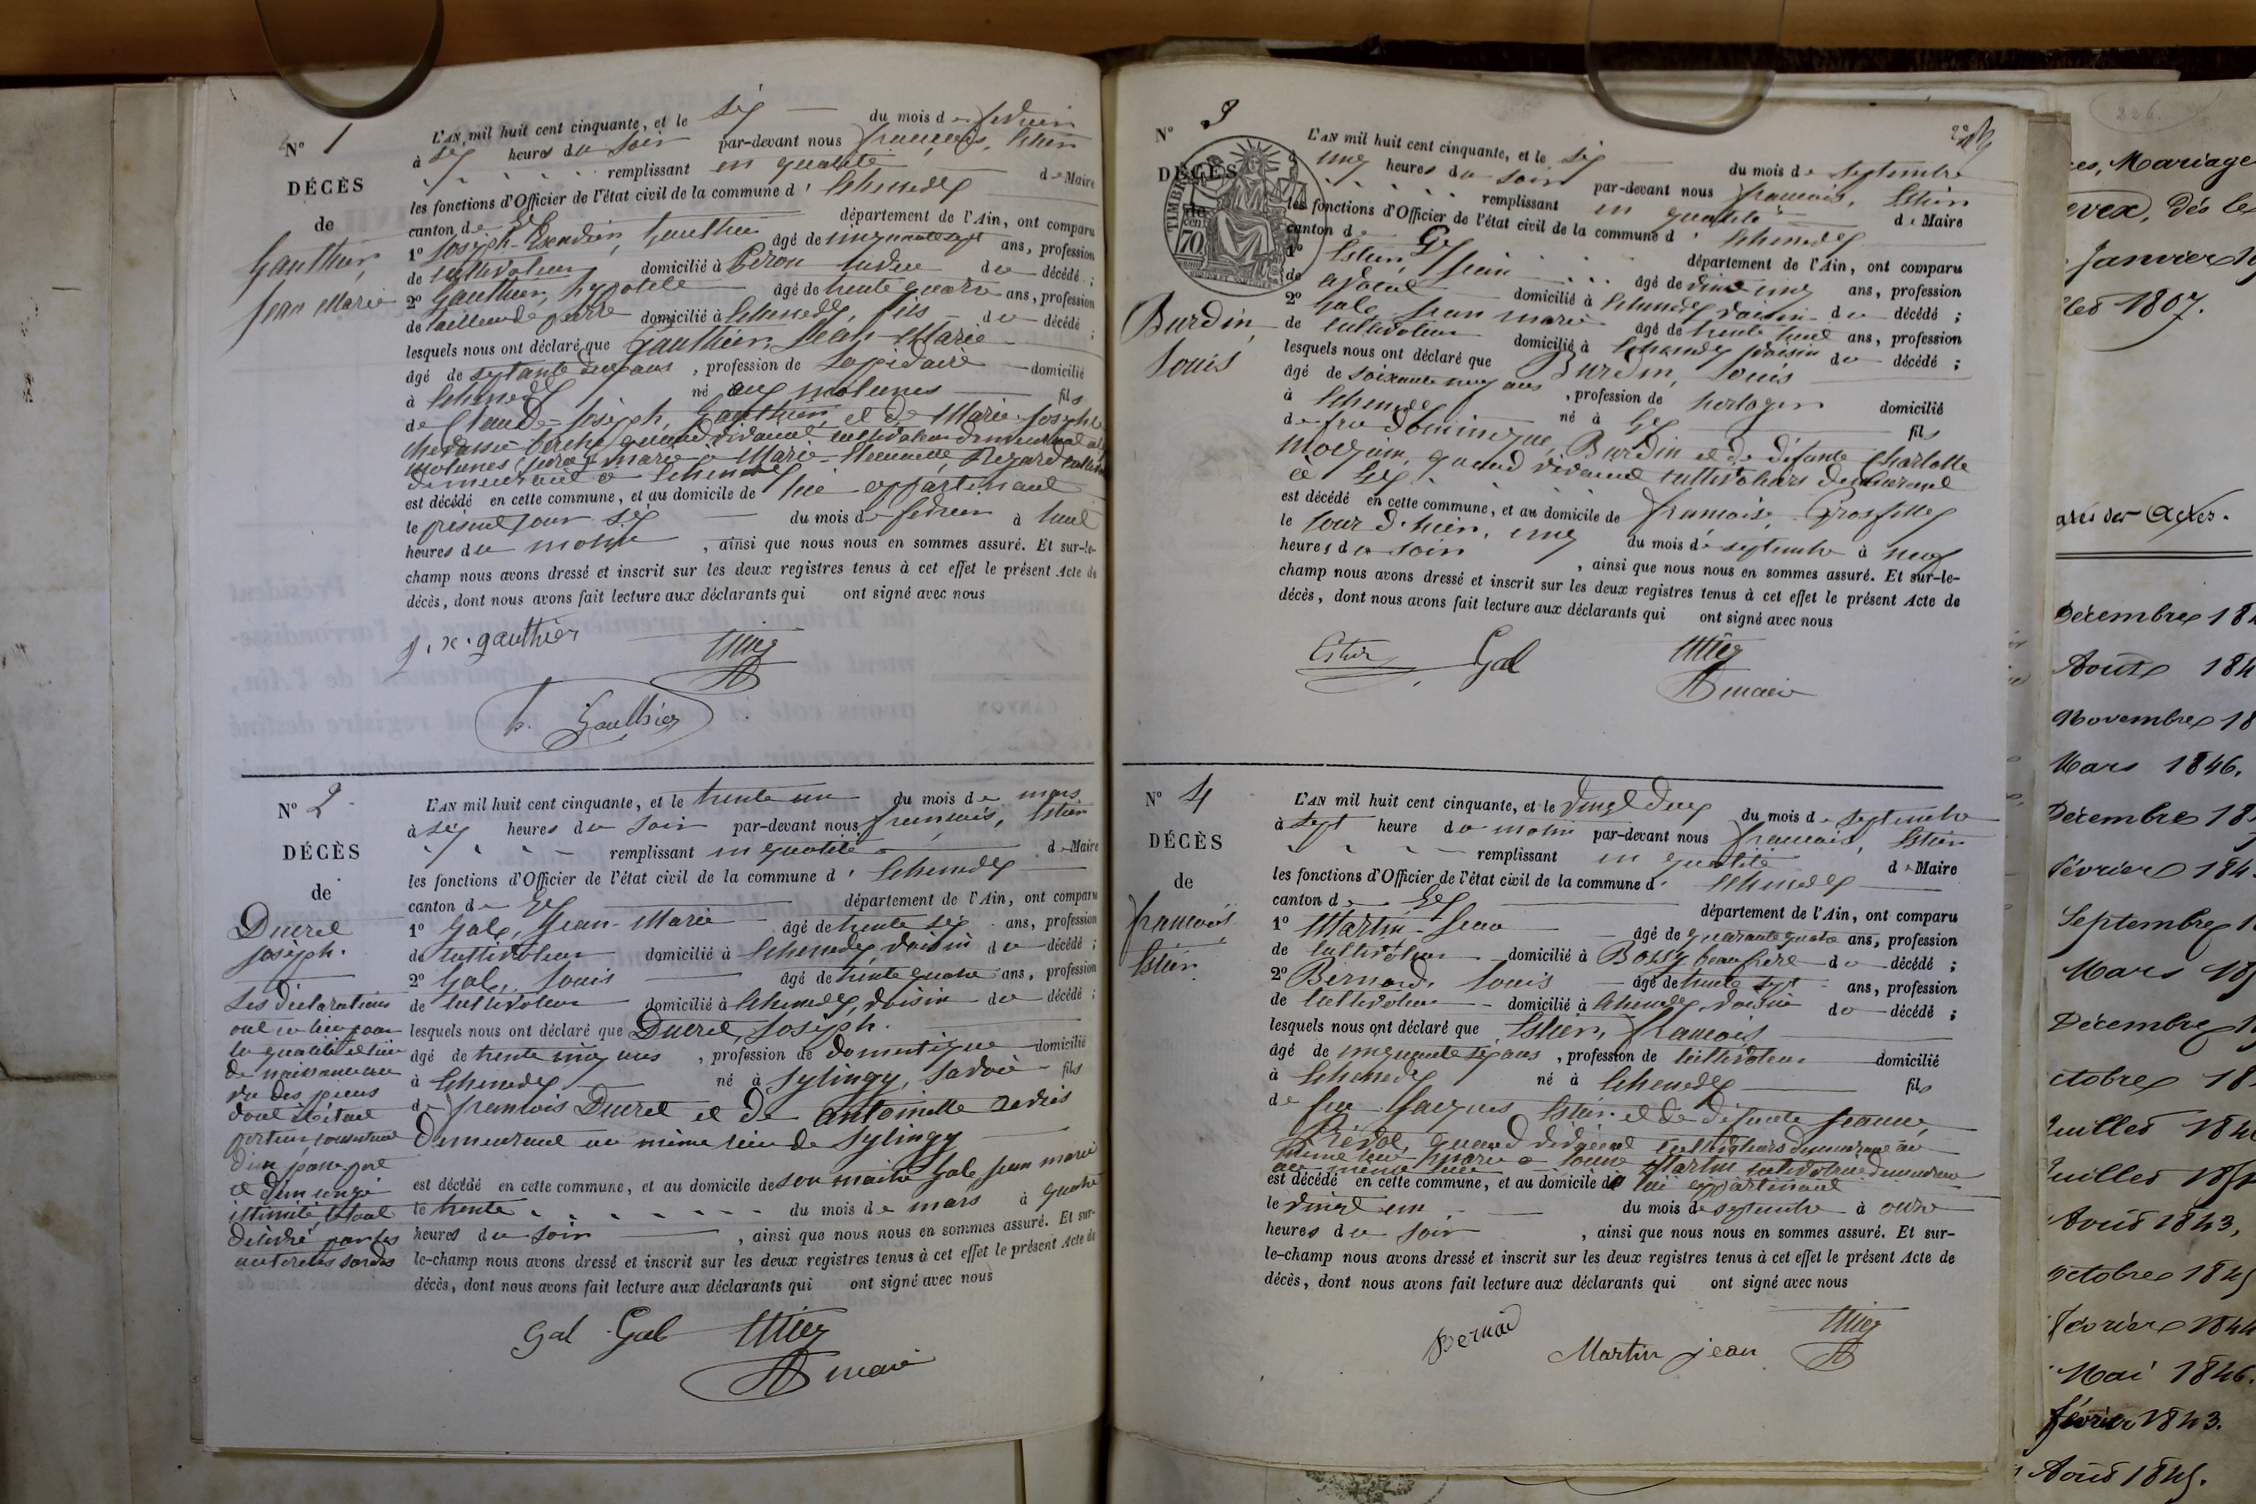 N° 1
DÉCÈS
de
Gauthier,
Jean Marie
L'AN mil huit cent cinquante, et le six du mois de février
à six heures du soir par-devant nous françois, Estier
remplissant en qualité de Maire
les fonctions d'Officier de l'état civil de la commune d' Echenevex
canton de Gex département de l'Ain, ont comparu
1° Joseph Gauthier âgé de cinquante sept ans, profession
de cultivateur domicilié à Péron du décédé ;
2° Gauthier, hypolite âgé de trente quatre ans, profession
de tailleur de pierre domicilié à Echenevex, fils du décédé ;
lesquels nous ont déclaré que Gauthier, Jean-Marie
âgé de septante deux ans, profession de Lapidaire domicilié
à Echenevex né aux molunes fils
de Claude-Joseph, Gauthier, et de Marie-Josephte
quand vivaient cultivateurs demeurant
molunes (jura) marié à Marie
demeurant à Echenevex
est décédé en cette commune, et au domicile de lui appartenant
le présent jour six du mois de février à huit
heures du matin, ainsi que nous nous en sommes assuré. Et sur-le-
champ nous avons dressé et inscrit sur les deux registres tenus à cet effet le présent Acte de
décès, dont nous avons fait lecture aux déclarants qui ont signé avec nous
j. x. gauthier
h. Gauthier
N° 2
DÉCÈS
de
Ducret
Joseph.
Les déclarations
ont eu lieu pour
la qualité et lieu
de naissance au
vu des pièces
dont il était
porteur,
d'un passe port
et d'un congé
délivré par les
autorités sardes
L'AN mil huit cent cinquante, et le trente un du mois de mars
à six heures du soir par-devant nous françois, Estier
remplissant en qualité de Maire
les fonctions d'Officier de l'état civil de la commune d' Echenevex
canton de Gex département de l'Ain, ont comparu
1° Gale, Jean-Marie âgé de trente six ans, profession
de cultivateur domicilié à Echenevex, voisin du décédé ;
2° Gale, Louis âgé de trente quatre ans, profession
de cultivateur domicilié à Echenevex, voisin du décédé ;
lesquels nous ont déclaré que Ducret, Joseph.
âgé de trente cinq ans, profession de domestique domicilié
à Echenevex né à Sylingy, Savoie fils
de françois Ducret et de antoinette
demeurant au même lieu de Sylingy
est décédé en cette commune, et au domicile de son maître Gale jean marie
le trente du mois de mars à quatre
heures du soir, ainsi que nous nous en sommes assuré. Et sur-
le-champ nous avons dressé et inscrit sur les deux registres tenus à cet effet le présent Acte de
décès, dont nous avons fait lecture aux déclarants qui ont signé avec nous
Gal Gale
maire
N° 3
DÉCÈS
de
TIMBRE
70
Burdin,
Louis
L'AN mil huit cent cinquante, et le six du mois de septembre
à cinq heures du soir par-devant nous françois, Estier
remplissant en qualité de Maire
les fonctions d'Officier de l'état civil de la commune d' Echenevex
canton de Gex département de l'Ain, ont comparu
1° Estier, Jean âgé de vingt cinq ans, profession
de avocat domicilié à Echenevex voisin du décédé ;
2° Gale Jean marie âgé de trente huit ans, profession
de cultivateur domicilié à Echenevex voisin du décédé ;
lesquels nous ont déclaré que Burdin, Louis
âgé de soixante neuf ans, profession de horloger domicilié
à Echenevex né à Gex fils
de feu dominique, Burdin et de défunte Charlotte
quand vivaient cultivateurs demeurant
à Gex
est décédé en cette commune, et au domicile de françois, Grosfilley
le jour d'hier, cinq du mois de septembre à neuf
heures du soir, ainsi que nous nous en sommes assuré. Et sur-le-
champ nous avons dressé et inscrit sur les deux registres tenus à cet effet le présent Acte de
décès, dont nous avons fait lecture aux déclarants qui ont signé avec nous
Estier Gal
maire
N° 4
DÉCÈS
de
françois
Estier
L'AN mil huit cent cinquante, et le vingt deux du mois de septembre
à sept heure du matin par-devant nous françois, Estier
remplissant en qualité de Maire
les fonctions d'Officier de l'état civil de la commune d' Echenevex
canton de Gex département de l'Ain, ont comparu
1° Martin Jean âgé de quarante quatre ans, profession
de cultivateur domicilié à Bossy beau frère du décédé ;
2° Bernard, Louis âgé de trente sept ans, profession
de cultivateur domicilié à Echenevex voisin du décédé ;
lesquels nous ont déclaré que Estier, françois
âgé de cinquante six ans, profession de cultivateur domicilié
à Echenevex né à Echenevex fils
de feu Jacques Estier et de défunte Jeanne,
quand vivaient cultivateurs demeurant au
même lieu marié à Louise Martin cultivatrice demeurant
au même lieu
est décédé en cette commune, et au domicile de lui appartenant
le vingt un du mois de septembre à onze
heures du soir, ainsi que nous nous en sommes assuré. Et sur-
le-champ nous avons dressé et inscrit sur les deux registres tenus à cet effet le présent Acte de
décès, dont nous avons fait lecture aux déclarants qui ont signé avec nous
Bernard
Martin jean
226.
Mariage
dès le
Janvier
1807.
des Actes.
Décembre 18
Août 184
Novembre 18
Mars 1846.
Décembre 18
février 184
Septembre 1
Mars 18
Décembre 1
ctobre 18
Juillet 184
Juillet 18
Août 1843,
octobre 184
février 1844
Mai 1846.
février 1843.
Août 1845.